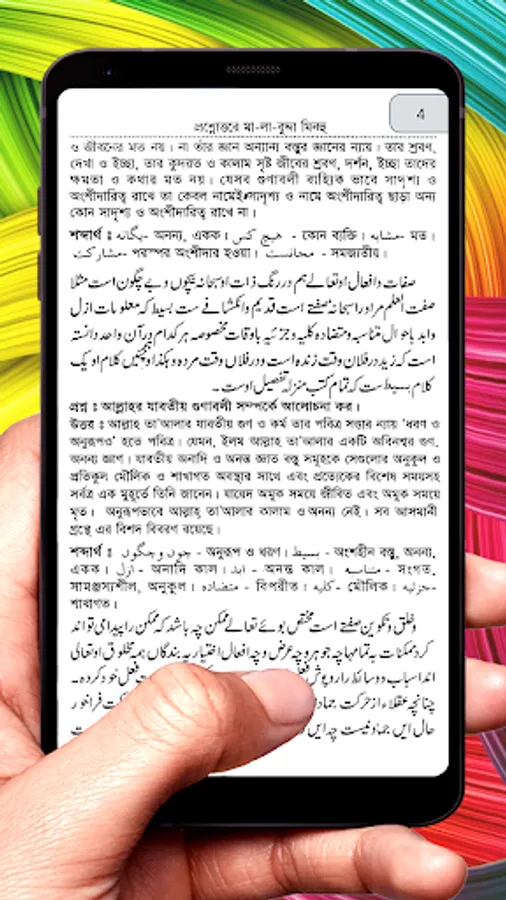 4
প্রশ্নোত্তরে মা-লা-বুদ্দা মিনহু
ও জীবনের মত নয়। না তাঁর জ্ঞান অন্যান্য বস্তুর জ্ঞানের ন্যায়। তার শ্রবণ,
দেখা ও ইচ্ছা, তার কুদরত ও কালাম সৃষ্ট জীবের শ্রবণ, দর্শন, ইচ্ছা তাদের
ক্ষমতা ও কথার মত নয়। যেসব গুণাবলী বাহ্যিক ভাবে সাদৃশ্য ও
অংশীদারিত্ব রাখে তা কেবল নামেই সাদৃশ্য ও নামে অংশীদারিত্ব ছাড়া অন্য
কোন সাদৃশ্য ও অংশীদারিত্ব রাখে না।
শব্দার্থ ঃ یگانہ- অনন্য, একক। ہیچ کس - কোন ব্যক্তি। مشابہ- মত।
مشارکت- পরস্পর অংশীদার হওয়া। مجانست - সমজাতীয়।
صفات و افعال او تعالے ہم در رنگ ذات او سبحانہ بیچوں و بے چگون است مثلا
صفت العلم مر او را سبحانہ صفتے است قدیم و انکشافے ست بسیط کہ معلومات ازل
و ابد با حوال متناسبہ و متضادہ کلیہ و جزئیہ با وقات مخصوصہ ہر کدام در آن واحد دانستہ
است کہ زید در فلاں وقت زندہ است و در فلاں وقت مردہ و ہکذا و ہمچنیں کلام او یک
کلام بسیط ست کہ تمام کتب منزلہ تفصیل اوست۔
প্রশ্ন ঃ আল্লাহর যাবতীয় গুণাবলী সম্পর্কে আলোচনা কর।
উত্তর ঃ আল্লাহ তা'আলার যাবতীয় গুণ ও কর্ম তার পবিত্র সত্তার ন্যায় 'ধরণ ও
অনুরূপও' হতে পবিত্র। যেমন, ইলম আল্লাহ তা'আলার একটি অবিনশ্বর গুণ,
অনন্য জ্ঞাণ। যাবতীয় অনাদি ও অনন্ত জ্ঞাত বস্তু সমূহকে সেগুলোর অনুকুল ও
প্রতিকুল মৌলিক ও শাখাগত অবস্থার সাথে এবং প্রত্যেকের বিশেষ সময়সহ
সর্বত্র এক মুহূর্তে তিনি জানেন। যায়েদ অমুক সময়ে জীবিত এবং অমুক সময়ে
মৃত। অনুরূপভাবে আল্লাহ্ তা'আলার কালাম ও অনন্য নেই। সব আসমানী
গ্রন্থে এর বিশদ বিবরণ রয়েছে।
শব্দার্থ ঃ چوں وچگوں - অনুরূপ ও ধরণ। بسیط - অংশহীন বস্তু, অনন্য,
একক। ازل - অনাদি কাল। ابد - অনন্ত কাল। متناسبہ - সংগত,
সামঞ্জস্যশীল, অনুকুল। متضادہ - বিপরীত। کلیہ- মৌলিক। جزئیہ-
শাখাগত।
و خلق و تکوین صفتے است مختص بوئے تعالے ممکن چہ باشد کہ ممکن را پیدا می تواند
کرد ممکنات بہ تمامہا چہ جوہر و چہ عرض و چہ افعال اختیاریہ بندگاں ہمہ مخلوق او تعالی
اند اسباب و وسائط را روپوش فعل فعل خود کردہ۔
چنانچہ عقلاء از حرکت جماد کت فرا خور
حال ایں جماد نیست چہ ایں ست